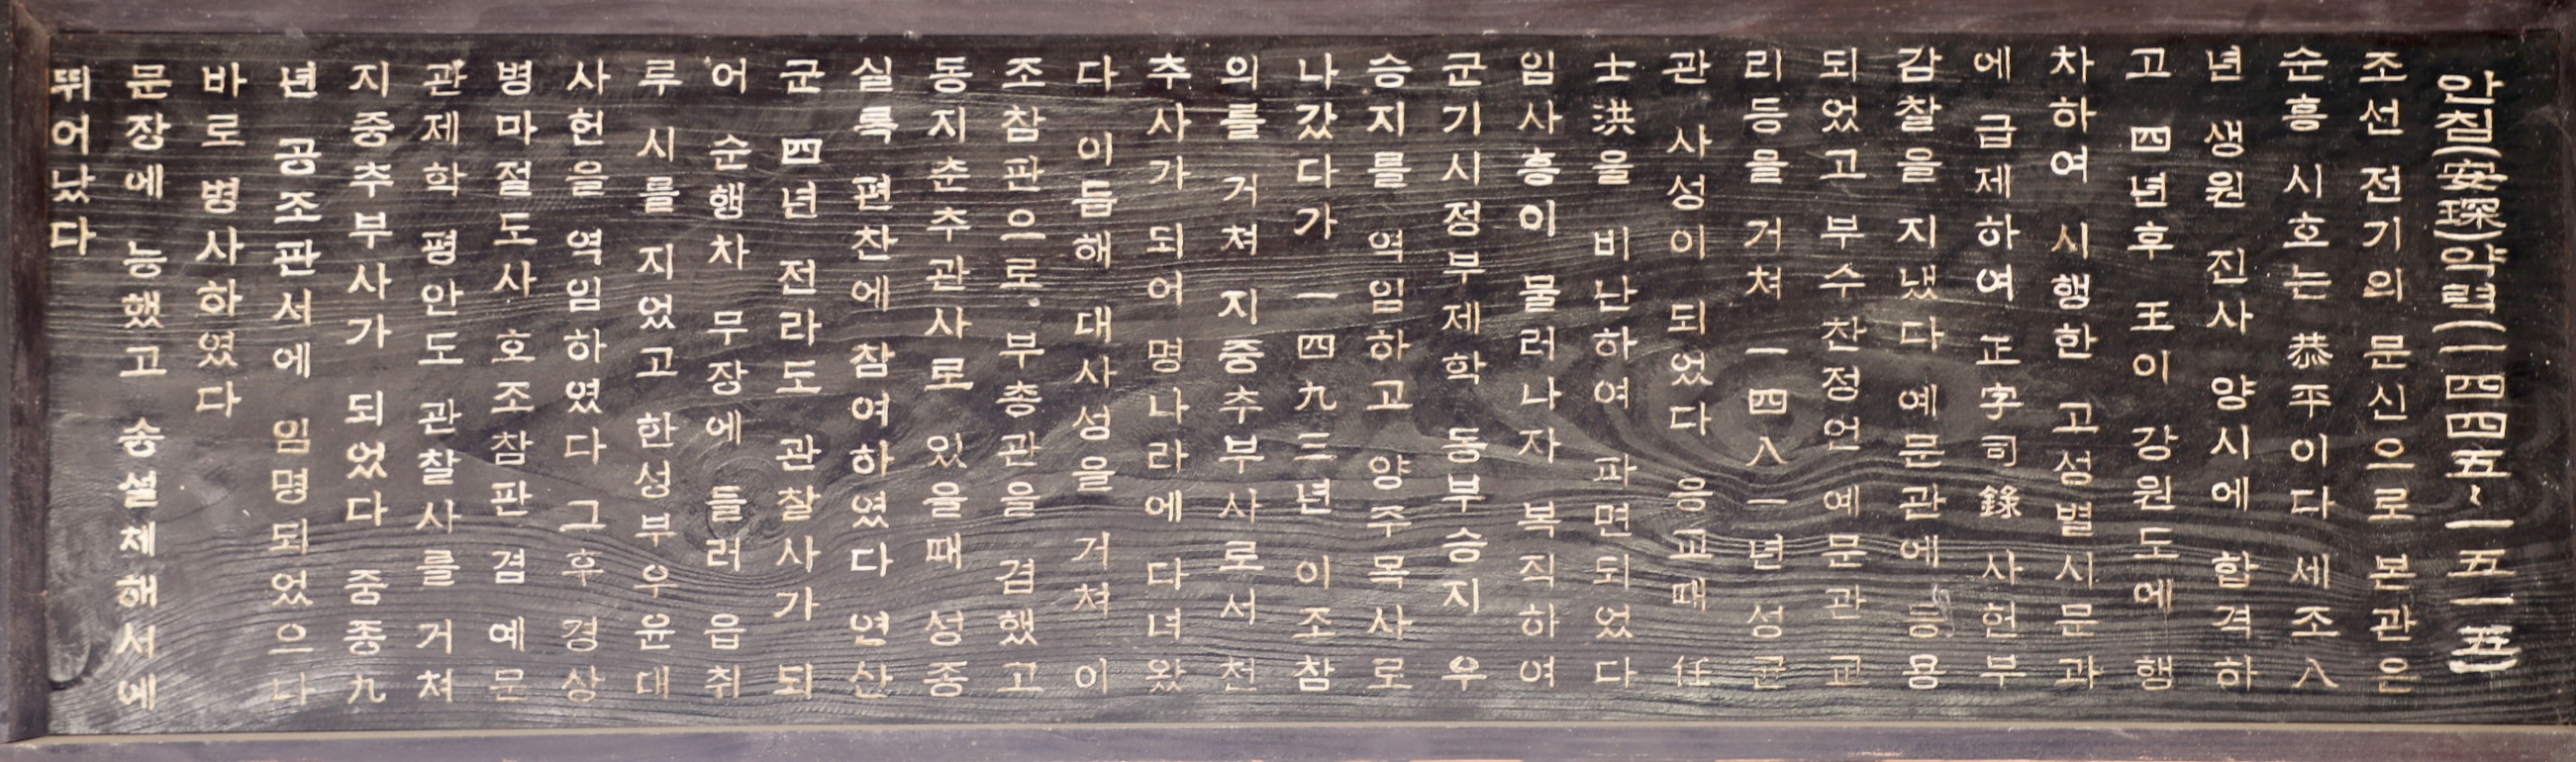 안침(安琛)약력(一四四五~一五一五)
조선 전기의 문신으로 본관은
순흥 시호는 恭平이다 세조八
년 생원 진사 양시에 합격하
고 四년후 王이 강원도에 행
차하여 시행한 고성별시문과
에 급제하여 正字司錄 사헌부
감찰을 지냈다 예문관에 등용
되었고 부수찬정언 예문관 교
리등을 거쳐 一四八一년 성균
관 사성이 되었다 응교때 任
士洪을 비난하여 파면되었다
임사흥이 물러나자 복직하여
군기시정부제학 동부승지 우
승지를 역임하고 양주목사로
나갔다가 一四九三년 이조참
의를 거쳐 지중추부사로서 천
추사가 되어 명나라에 다녀왔
다 이듬해 대사성을 거쳐 이
조참판으로 부총관을 겸했고
동지춘추관사로 있을때 성종
실록 편찬에 참여하였다 연산
군 四년 전라도 관찰사가 되
어 순행차 무장에 들러 읍취
루 시를 지었고 한성부우윤대
사헌을 역임하였다 그후 경상
병마절도사 호조참판 겸 예문
관제학 평안도 관찰사를 거쳐
지중추부사가 되었다 중종九
년 공조판서에 임명되었으나
바로 병사하였다
문장에 능했고 송설체해서에
뛰어났다